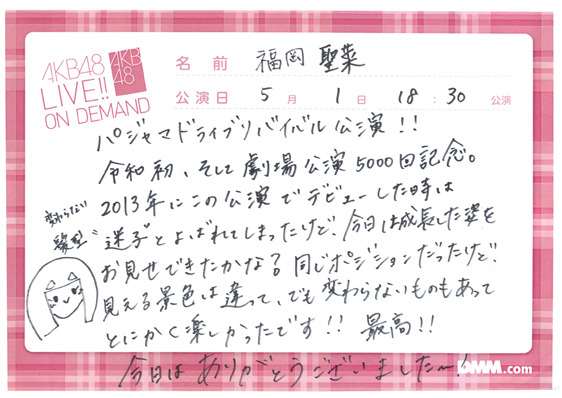 AKB48
LIVE!!
ON DEMAND
AKB
48
名前 福岡 聖菜
公演日 5月 1日 18:30 公演
パジャマドライブリバイバル公演!!
令和初、そして劇場公演5000回記念。
2013年にこの公演でデビューした時は
"迷子"とよばれてしまったけど、今日は成長した姿を
お見せできたかな? 同じポジションだったけど、
見える景色は違って、でも変わらないものもあって
とにかく楽しかったです!! 最高!!
今日はありがとうございました〜!
変わらない
髪型
DMM.com